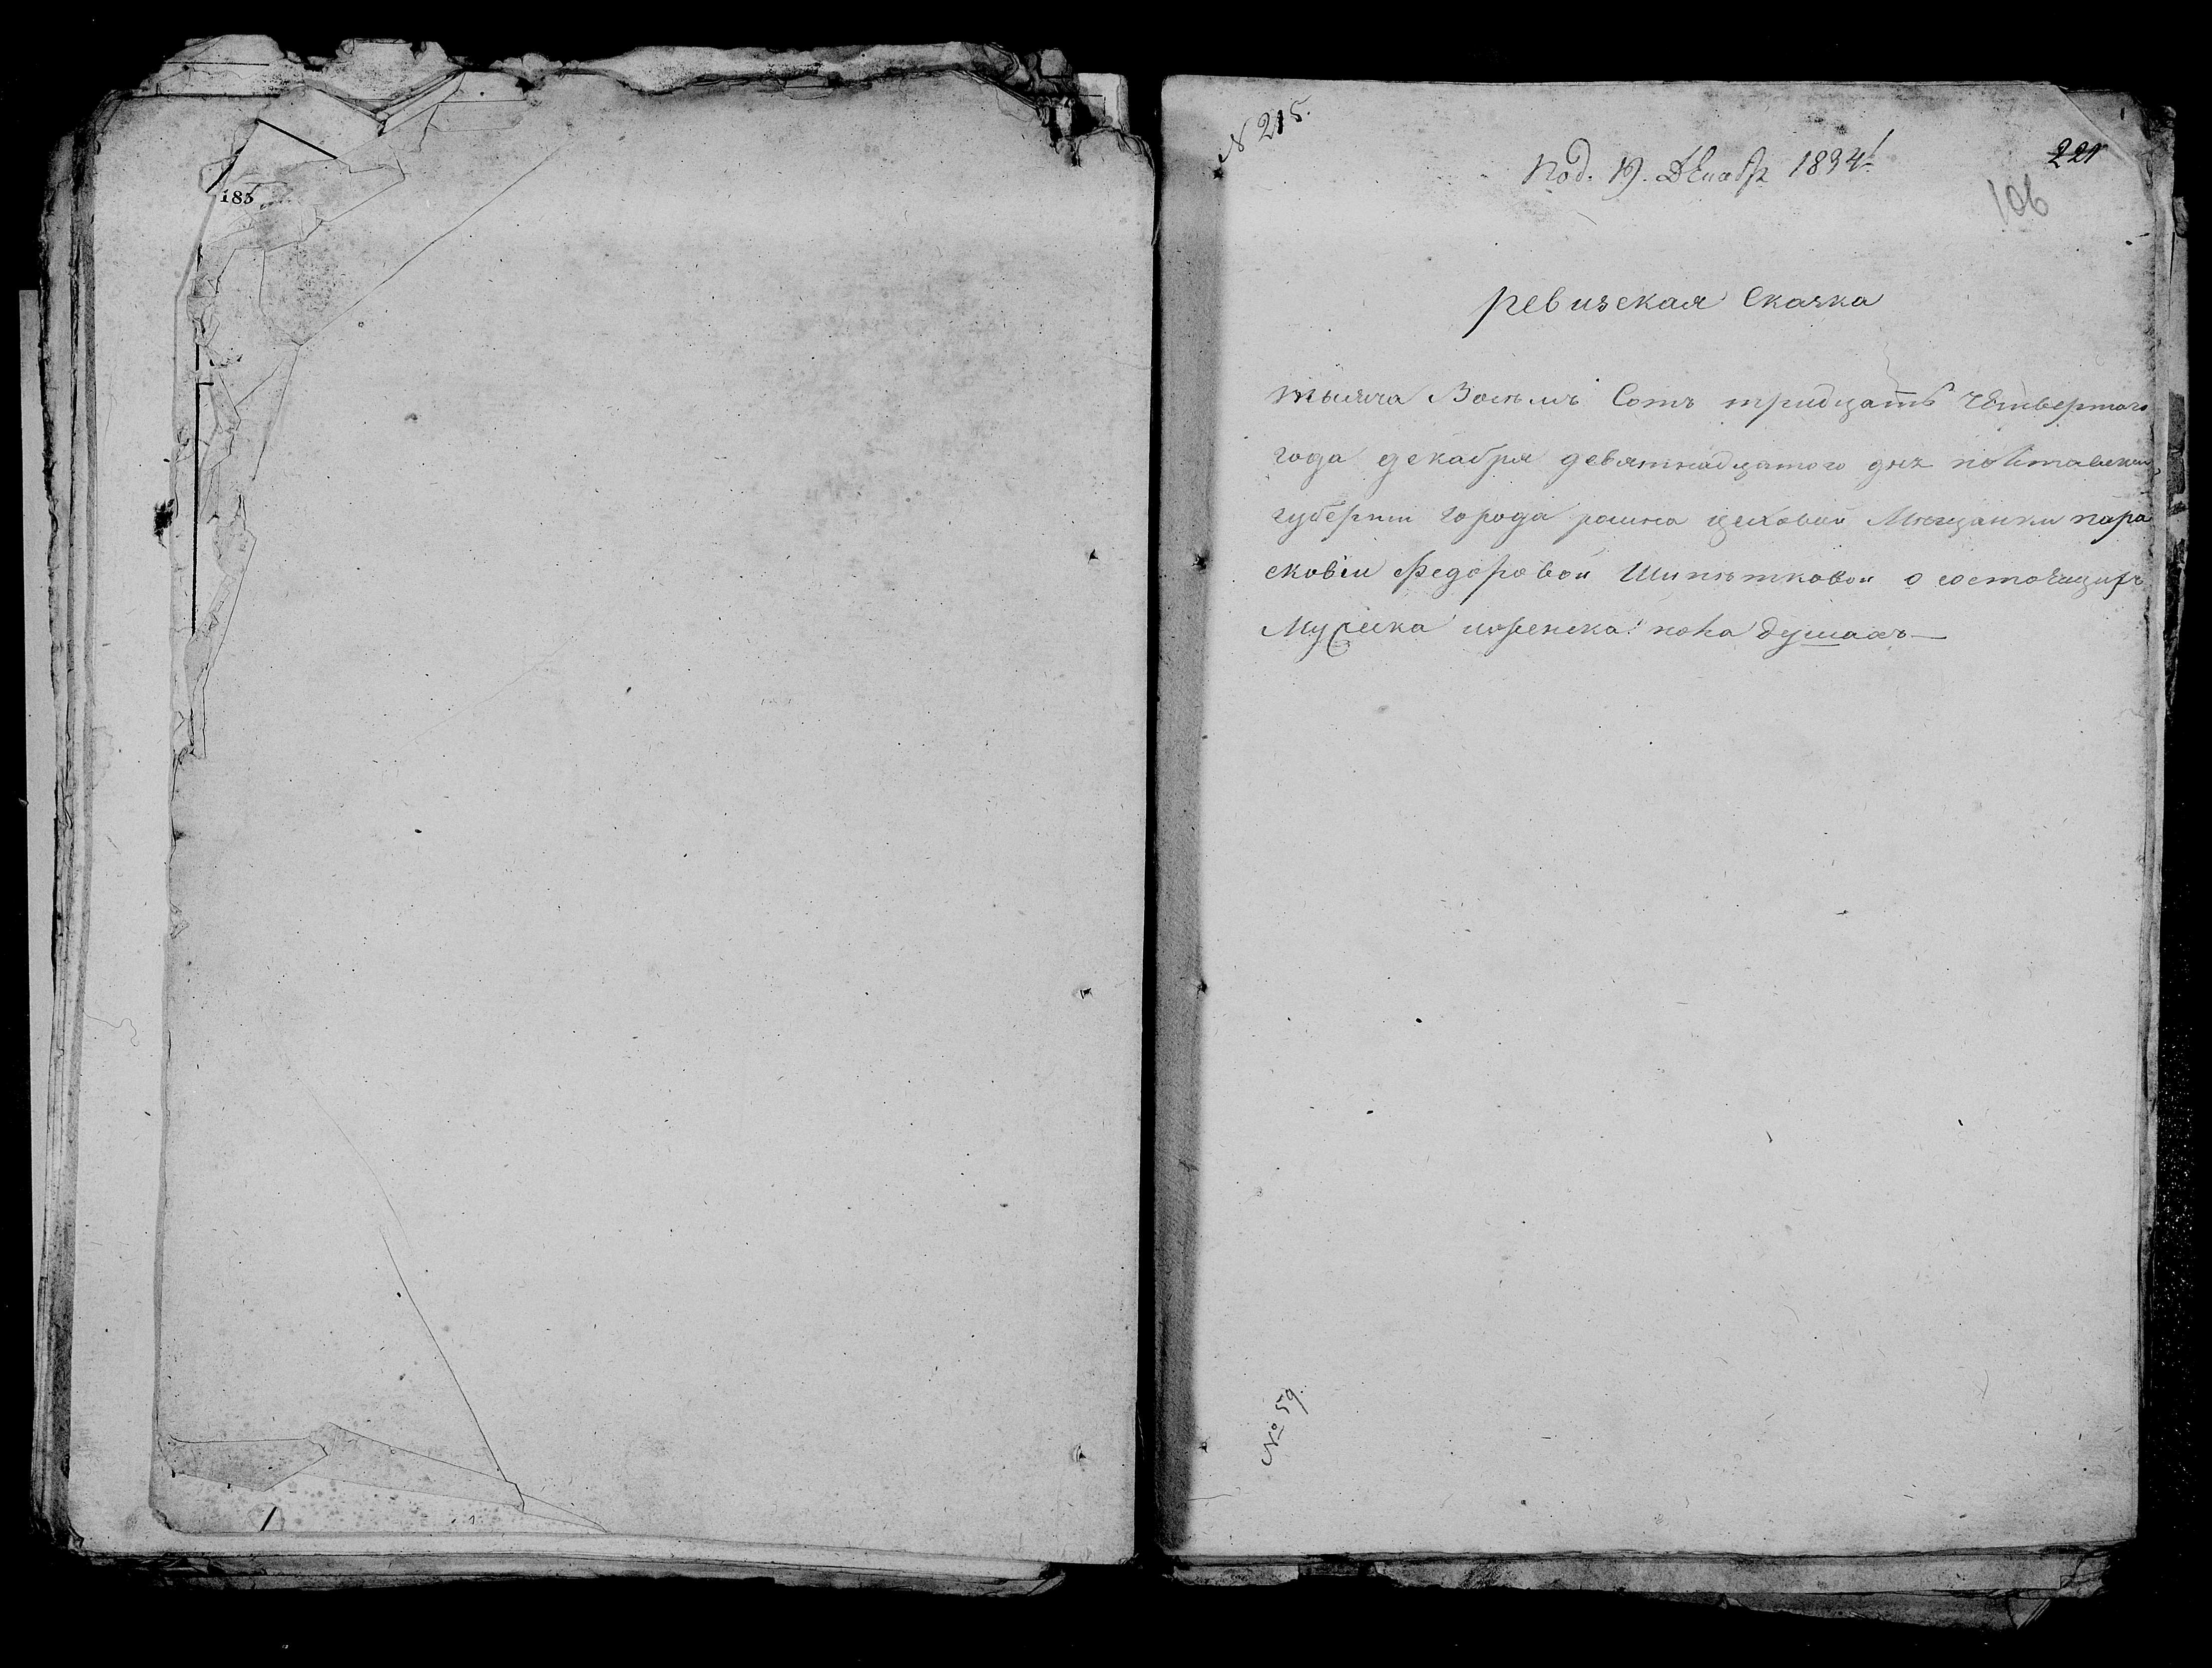 185
N 215.
Под. 19. Декабр 1834.
221
106
ревизская Сказка
тысяча Восемь Сотъ тридцать Четвертого
года декабря девятнадцатого дня полтавской
губернии города ромна цеховой Мещанки пара
сковіи Федоровой Шипотковой о состоящихъ
Мужеска иженска пола душахъ—
№ 59.